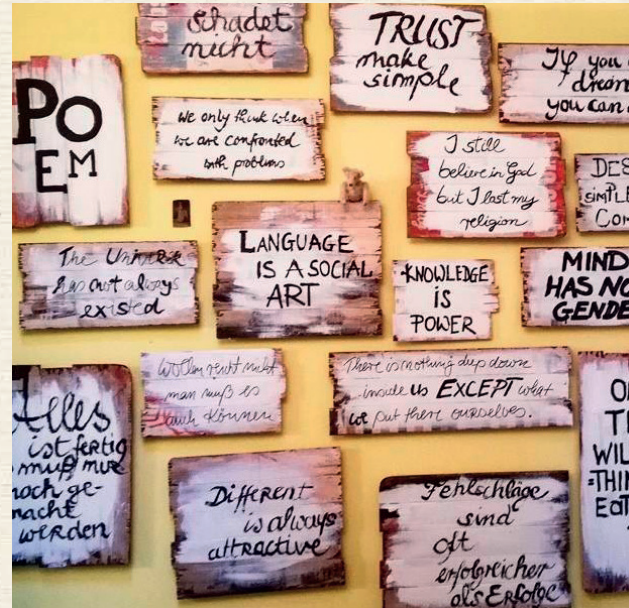 schadet
nicht
TRUST
make
simple
If you
dream
you can
PO
EM
we only think when
we are confronted
with problems
I still
believe in God
but I lost my
religion
DES
SIMPLE
COM
The Universe
has not always
existed
LANGUAGE
IS A SOCIAL
ART
KNOWLEDGE
IS
POWER
MIND
HAS NO
GENDE
Wollen reicht nicht
man muß es
auch können
There is nothing deep down
inside us EXCEPT what
we put there ourselves.
Alles
ist fertig
muß nur
noch ge-
macht
werden
Different
is always
attractive
Fehlschläge
sind
oft
erfolgreicher
als Erfolge
WILL
=THIN
EAT